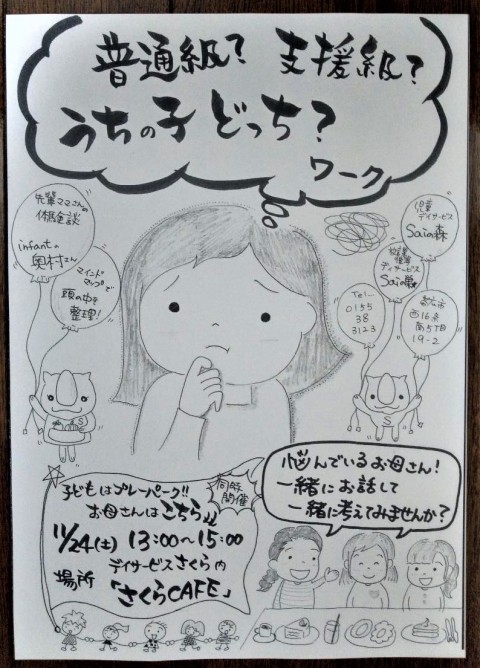 普通級？ 支援級？
うちの子どっち？
ワーク
先輩ママさんの
体験談
infantの
奥村さん
マインド
マップで
頭の中を
整理!
児童
デイサービス
Saiの森
放課後等
デイサービス
Saiの
Tel
0155
38
3123
帯広市
西16条
南5丁目
19-2
S
S
子どもはプレーパーク!!
お母さんはこちら
同時
開催
11/24(土) 13:00〜15:00
デイサービスさくら内
場所 「さくらCAFE」
悩んでいるお母さん!
一緒にお話して
一緒に考えてみませんか?